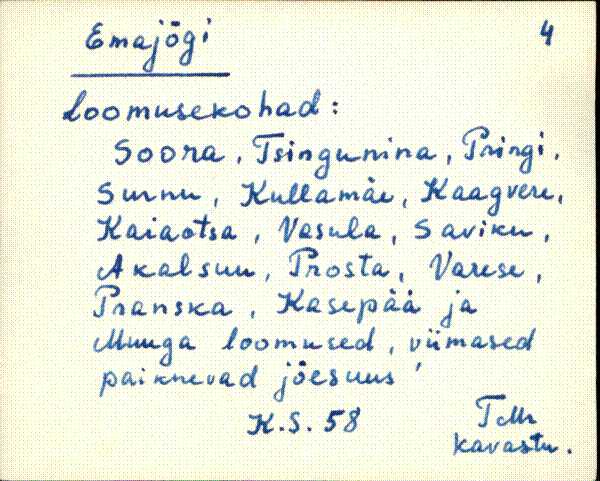 Emajõgi
4
Loomusekohad:
Soora, Tsingunina, Pringi,
Surnu, Kullamäe, Kaagvere,
Kaiaotsa, Vasula, Saviku,
Akalsuu, Prosta, Varese,
Pranska, Kasepää ja
Muuga loomused, viimased
paiknevad jõesuus
K.S. 58
TMr
Kavastu.